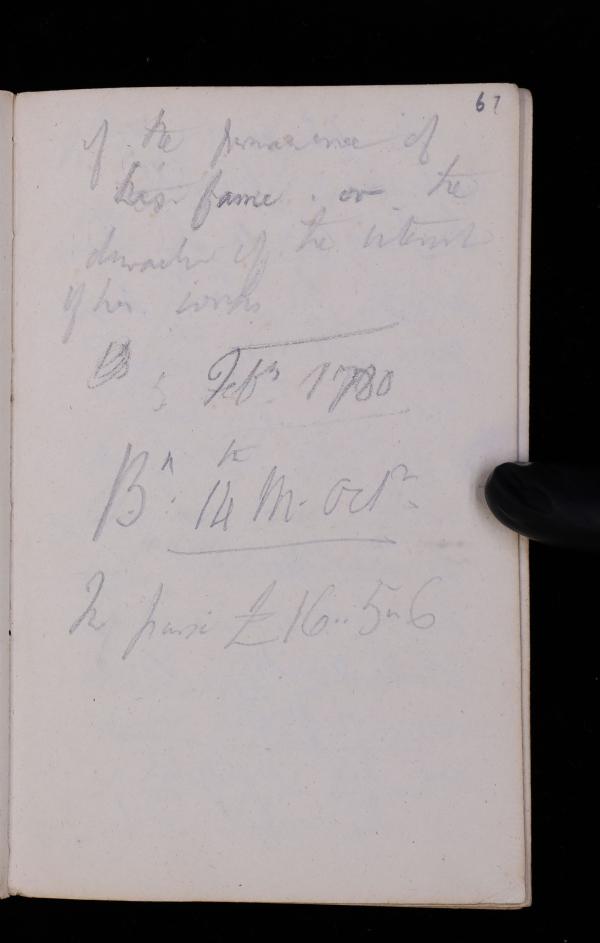 67
of the permanence of
his fame . or the
duration of the interest
of his works
5 Feby 1780
Bn. 14th Octr
In purse £16..5..6